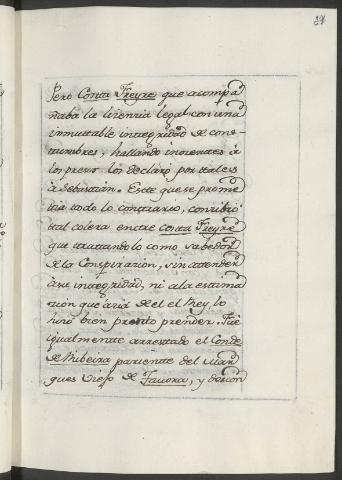 Pero Conta Freyre que acompa
ñaba la licencia legal con una
inmutable integridad de cos-
tumbres, hallando inocentes à
los presos los declaró por tales
à Sebastián. Este que se prome
tia todo lo contrario, concibió
tal colera contra Conta Freyre
que tratandolo como sabedor
de la Conspiracion, sin atender
à su integridad, ni a la estima
cion que acia de el el Rey lo
hizo bien presto prender. Fue
igualmente arrestado el Conde
de Ribeira pariente del Mar
ques Viejo de Tavora, y